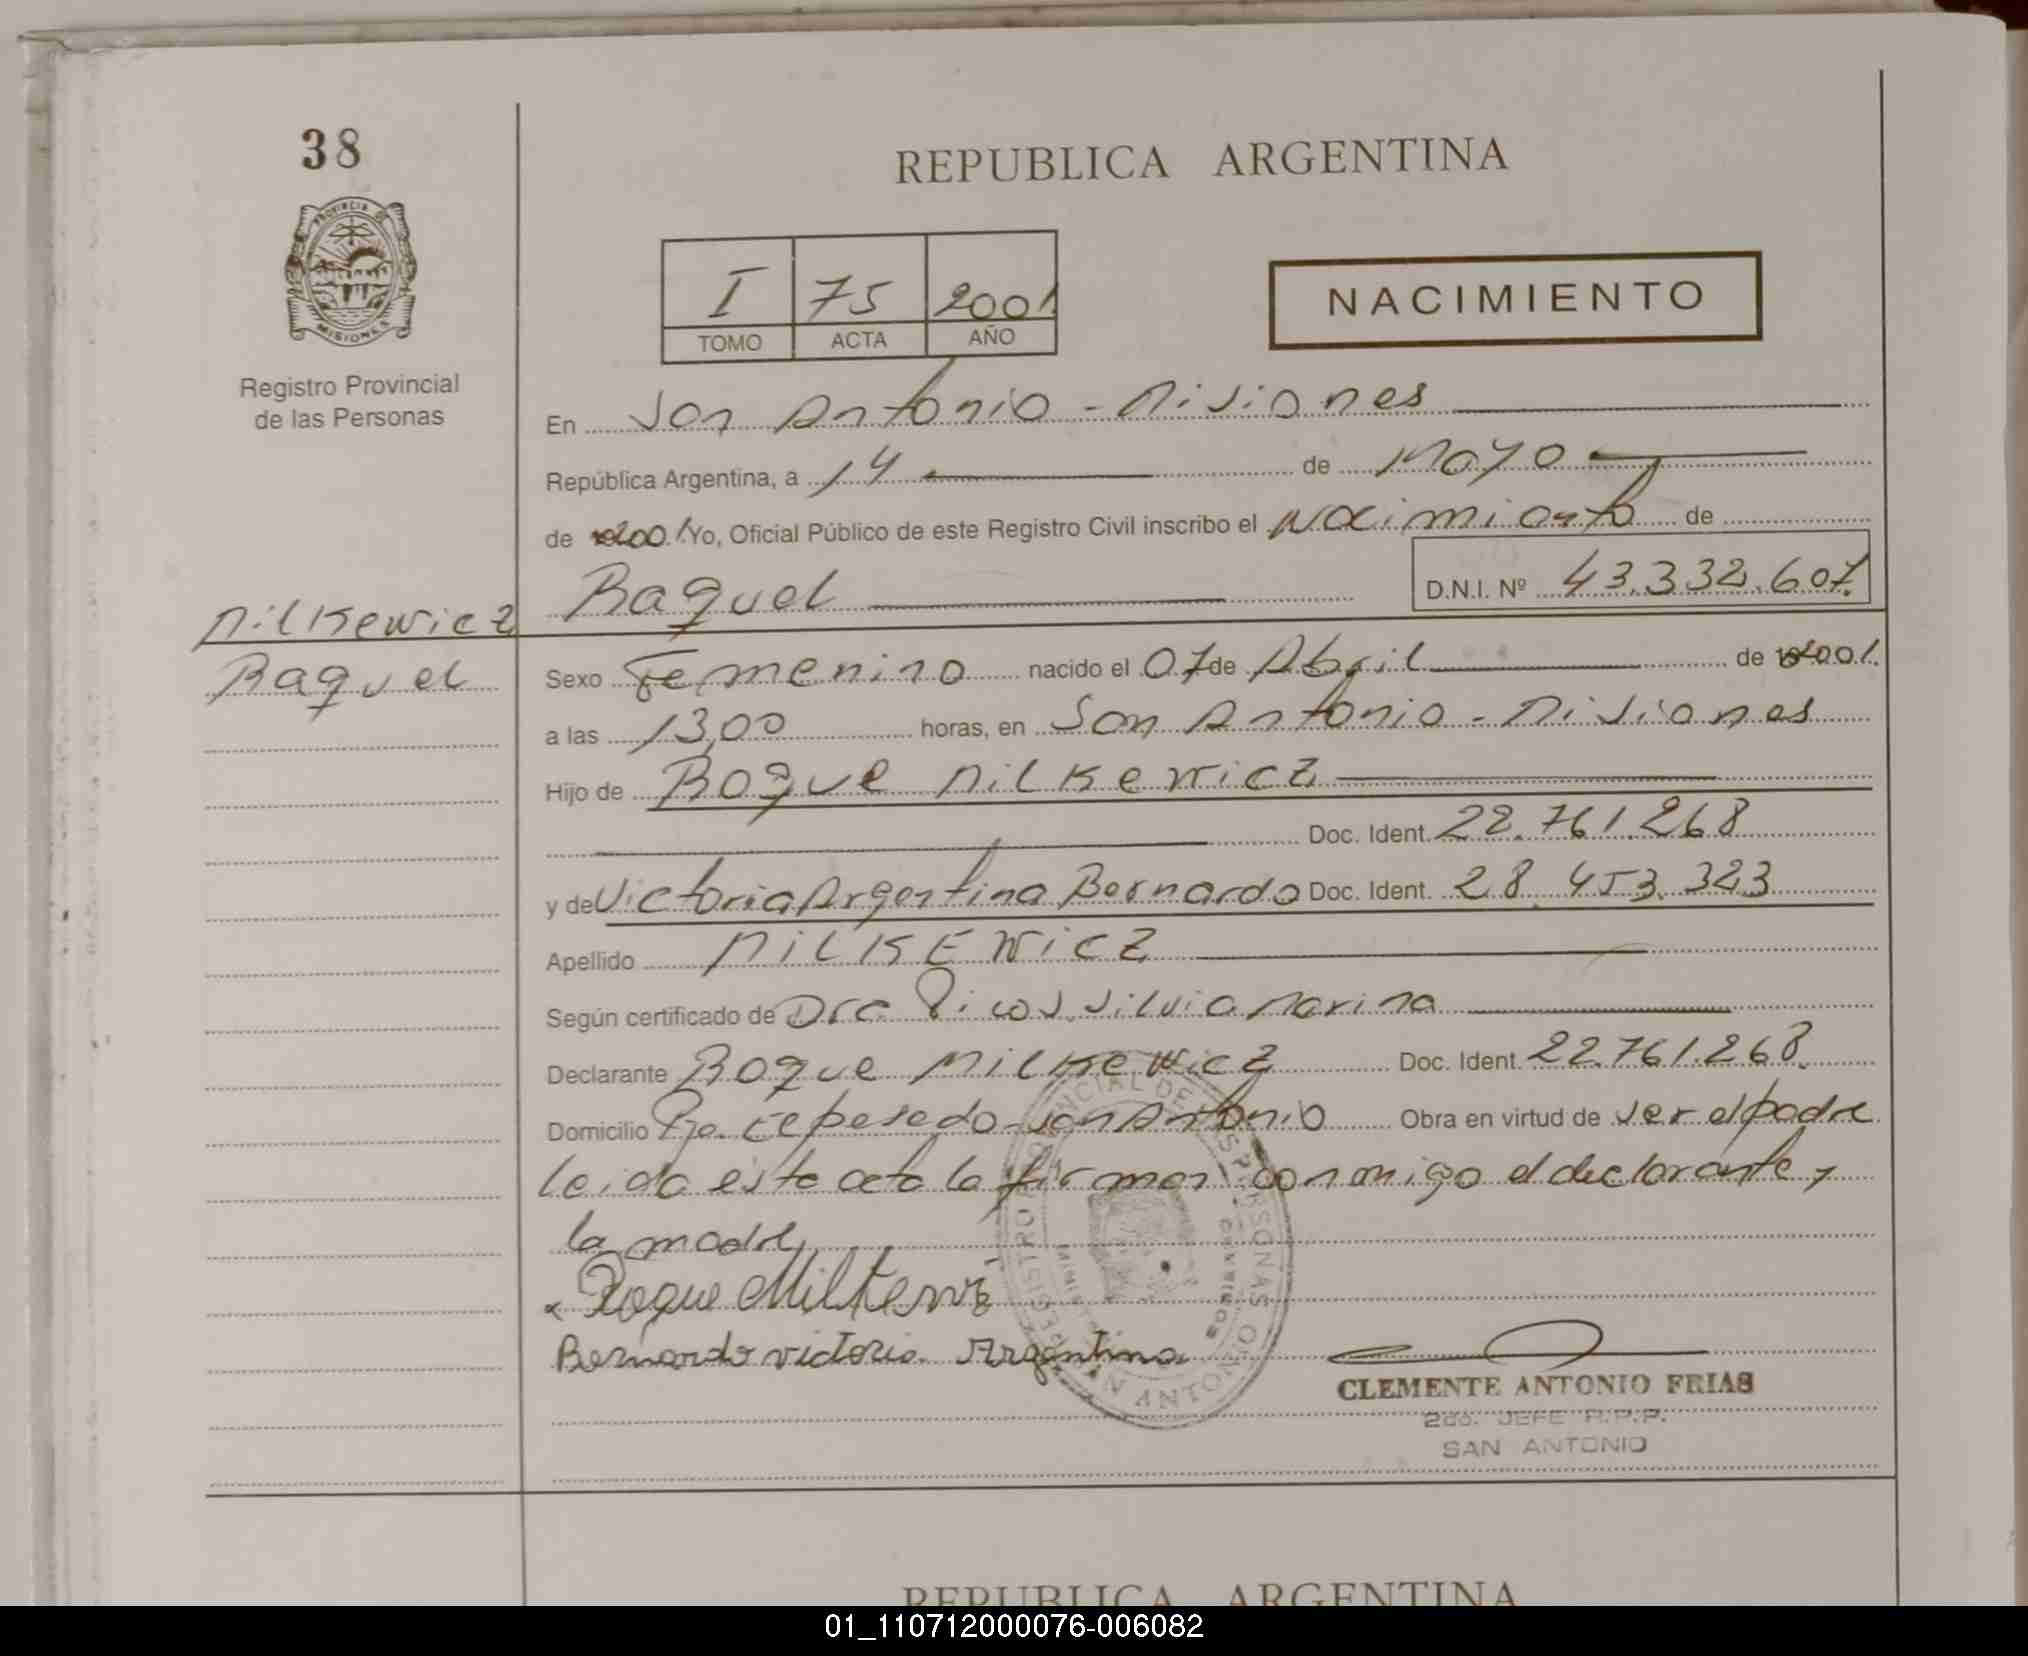 38
PROVINCIA DE
MISIONES
Registro Provincial
de las Personas
REPUBLICA ARGENTINA
I 75 2001
TOMO ACTA AÑO
NACIMIENTO
En San Antonio - Misiones
República Argentina, a 14 de Mayo
de 2001 Yo, Oficial Público de este Registro Civil inscribo el Nacimiento de
Raquel D.N.I. Nº 43.332.607.
Milkewicz
Raquel
Sexo Femenino nacido el 07 de Abril de 2001.
a las 13,00 horas, en San Antonio - Misiones
Hijo de Roque Milkewicz
Doc. Ident. 22.761.268
y de Victoria Argentina Bernardo Doc. Ident. 28.453.323
Apellido MILKEWICZ
Según certificado de Dra. Picos Silvia Marina
Declarante Roque Milkewicz Doc. Ident. 22.761.268.
Domicilio San Antonio Obra en virtud de ser el padre
leida esta acta la firman conmigo el declarante y
la madre
Roque
Bernardo victoria Argentina
CLEMENTE ANTONIO FRIAS
2do. JEFE R.P.P.
SAN ANTONIO
REPUBLICA ARGENTINA
01_110712000076-006082